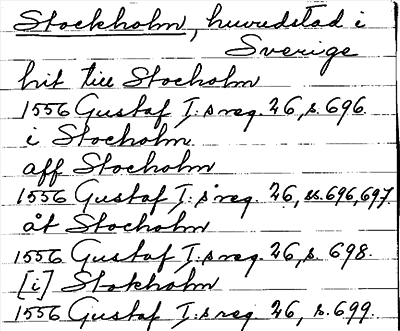 Stockholm, huvudstad i
Sverige
hit till Stocholm
1556 Gustaf I:s reg. 26, s. 696.
i Stocholm
aff Stocholm
1556 Gustaf I:s reg. 26, ss. 696, 697
åt Stocholm
1556 Gustaf I:s reg. 26, s. 698.
[i] Stokholm
1556 Gustaf I:s reg. 26, s. 699.